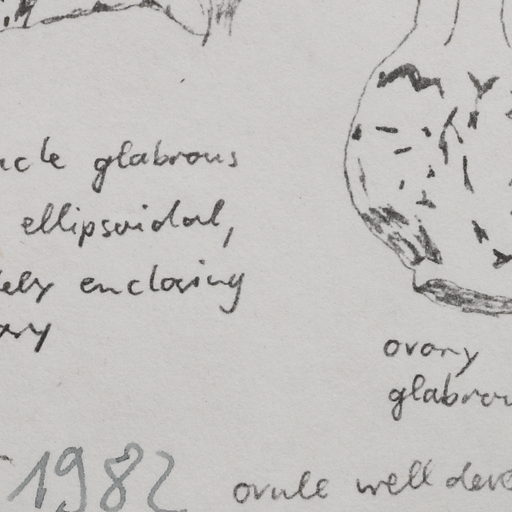 glabrous
ellipsoidal,
enclosing
ovary
glabrou
1982
ovule well deve